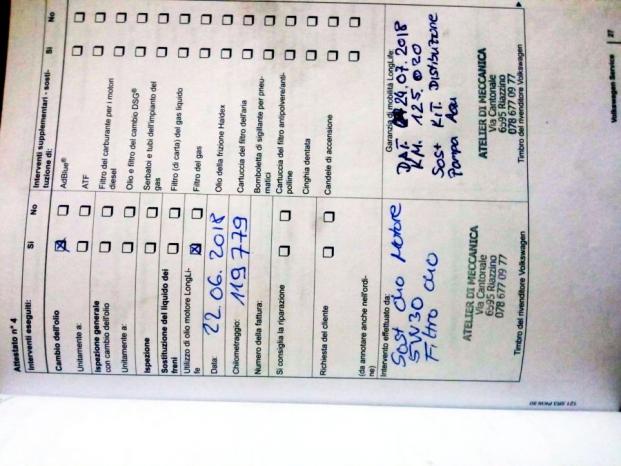 Attestato n° 4
Interventi eseguiti: Si No
Cambio dell'olio
Unitamente a:
Ispezione generale
con cambio dell'olio
Unitamente a:
Ispezione
Sostituzione del liquido dei
freni
Utilizzo di olio motore LongLi-
fe
Data: 22.06.2018
Chilometraggio: 119779
Numero della fattura:
Si consiglia la riparazione
Richiesta del cliente
(da annotare anche nell'ordi-
ne)
Intervento effettuato da:
Sost olio Motore
5W30
Filtro olio
ATELIER DI MECCANICA
Via Cantonale
6595 Riazzino
078 677 09 77
Timbro del rivenditore Volkswagen
Interventi supplementari - sosti-
tuzione di: Si No
AdBlue®
ATF
Filtro del carburante per i motori
diesel
Olio e filtro del cambio DSG®
Serbatoi e tubi dell'impianto del
gas
Filtro (di carta) del gas liquido
Filtro del gas
Olio della frizione Haldex
Cartuccia del filtro dell'aria
Bomboletta di sigillante per pneu-
matici
Cartuccia del filtro antipolvere/anti-
polline
Cinghia dentata
Candele di accensione
Garanzia di mobilità LongLife:
DAT. 24.07.2018
KM. 125.020
Sost KIT. Distribuzione
Pompa Acqu
ATELIER DI MECCANICA
Via Cantonale
6595 Riazzino
078 677 09 77
Timbro del rivenditore Volkswagen
Volkswagen Service 27